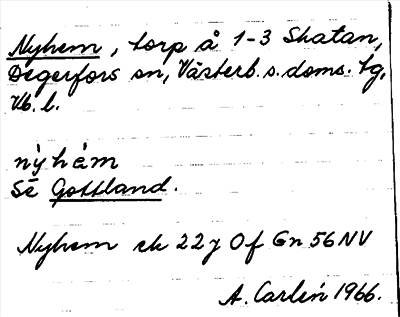 Nyhem, torp å 1-3 Skatan,
Degerfors sn, Västerb. s. doms. tg,
Vb. l.
nỳhém
Se Gottland.
Nyhem ek 22 J 0 f Gn 56 NV
A. Carlén 1966.